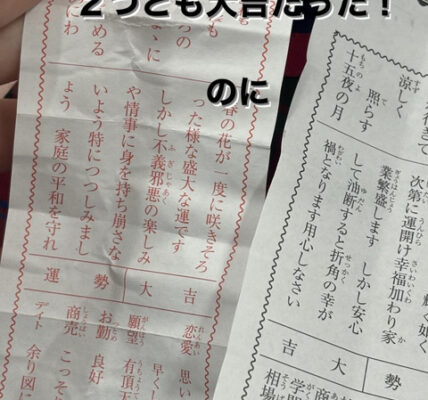 2つとも大吉だった！
のに
涼しく　照らす
十五夜の月
輝く如く
次第に運開け幸福加わり家
業繁盛します　しかし安心
して油断すると折角の幸が
禍となります用心しなさい
吉大
勢
相場
める
にわ
春の花が一度に咲きそろ
った様な盛大な運です
しかし不義邪悪の楽しみ
や情事に身を持ち崩さな
いよう特につつしみまし
ょう　家庭の平和を守れ
運勢
大吉
恋愛　思い
早くし
願望　有頂天
お勤　良好
商売　こっそ
デイト　余り図に